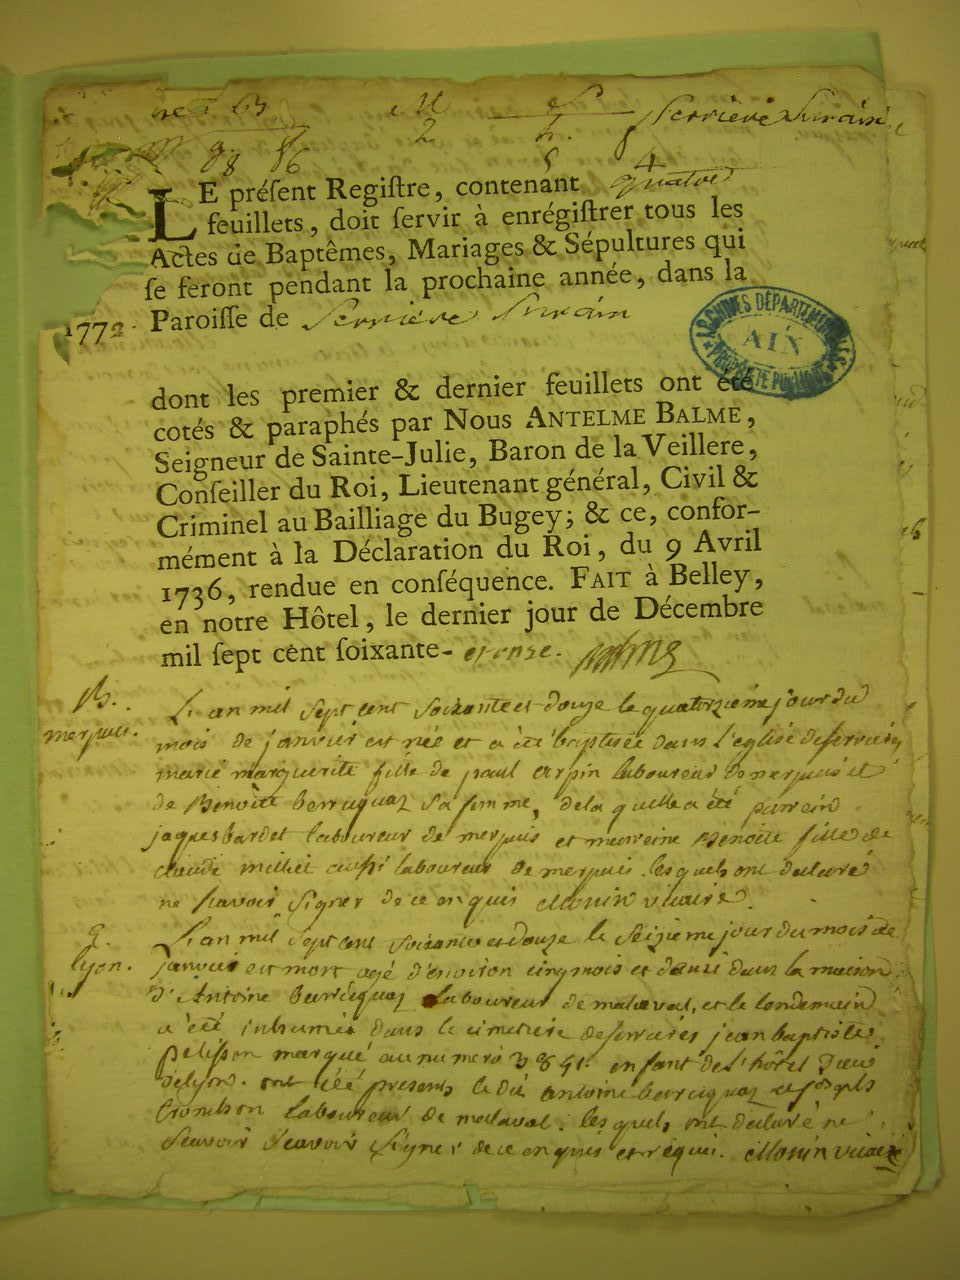 Serriere Surain
2 2.
98 86 5 4
LE préſent Regiſtre, contenant quatre
feuillets, doit ſervir à enrégiſtrer tous les
Actes de Baptêmes, Mariages & Sépultures qui
ſe feront pendant la prochaine année, dans la
1772. Paroiſſe de Serriere Surain
ARCHIVES DÉPARTEMENTALES
AIN
PROPRIÉTÉ PUBLIQUE
dont les premier & dernier feuillets ont été
cotés & paraphés par Nous ANTELME BALME,
Seigneur de Sainte-Julie, Baron de la Veillere,
Conſeiller du Roi, Lieutenant général, Civil &
Criminel au Bailliage du Bugey; & ce, confor-
mément à la Déclaration du Roi, du 9 Avril
1736, rendue en conſéquence. FAIT à Belley,
en notre Hôtel, le dernier jour de Décembre
mil ſept cent ſoixante- et onze.
B.
merpuis.
L'an mil sept cent soixante et douze le quatorzieme jour du
mois de janvier est née et a été baptisée dans l'eglise de serrieres
marie marguerite fille de paul arpin laboureur de merpuis et
de Benoite berruquaz sa femme, de la quelle a été parrein
jaques bardet laboureur de merpuis et marreine Benoite fille de
claude millet aussi laboureur de merpuis. les quels ont declaré
ne scavoir signer de ce enquis Monin vicaire.
lyon.
L'an mil sept cent soixante et douze le seizieme jour du mois de
janvier est mort agé d'environ cinq mois et demi dans la maison
d'Antoine berruquaz laboureur de malaval, et le lendemain
a été inhumé dans le cimetiere de serrieres jean baptiste
pelisson marqué au numero enfant de l'hôtel Dieu
de lyon. ont été presents le dit antoine berruquaz et joseph
laboureur de malaval. les quels ont declaré ne
scavoir signer de ce enquis et requis. Monin vicaire